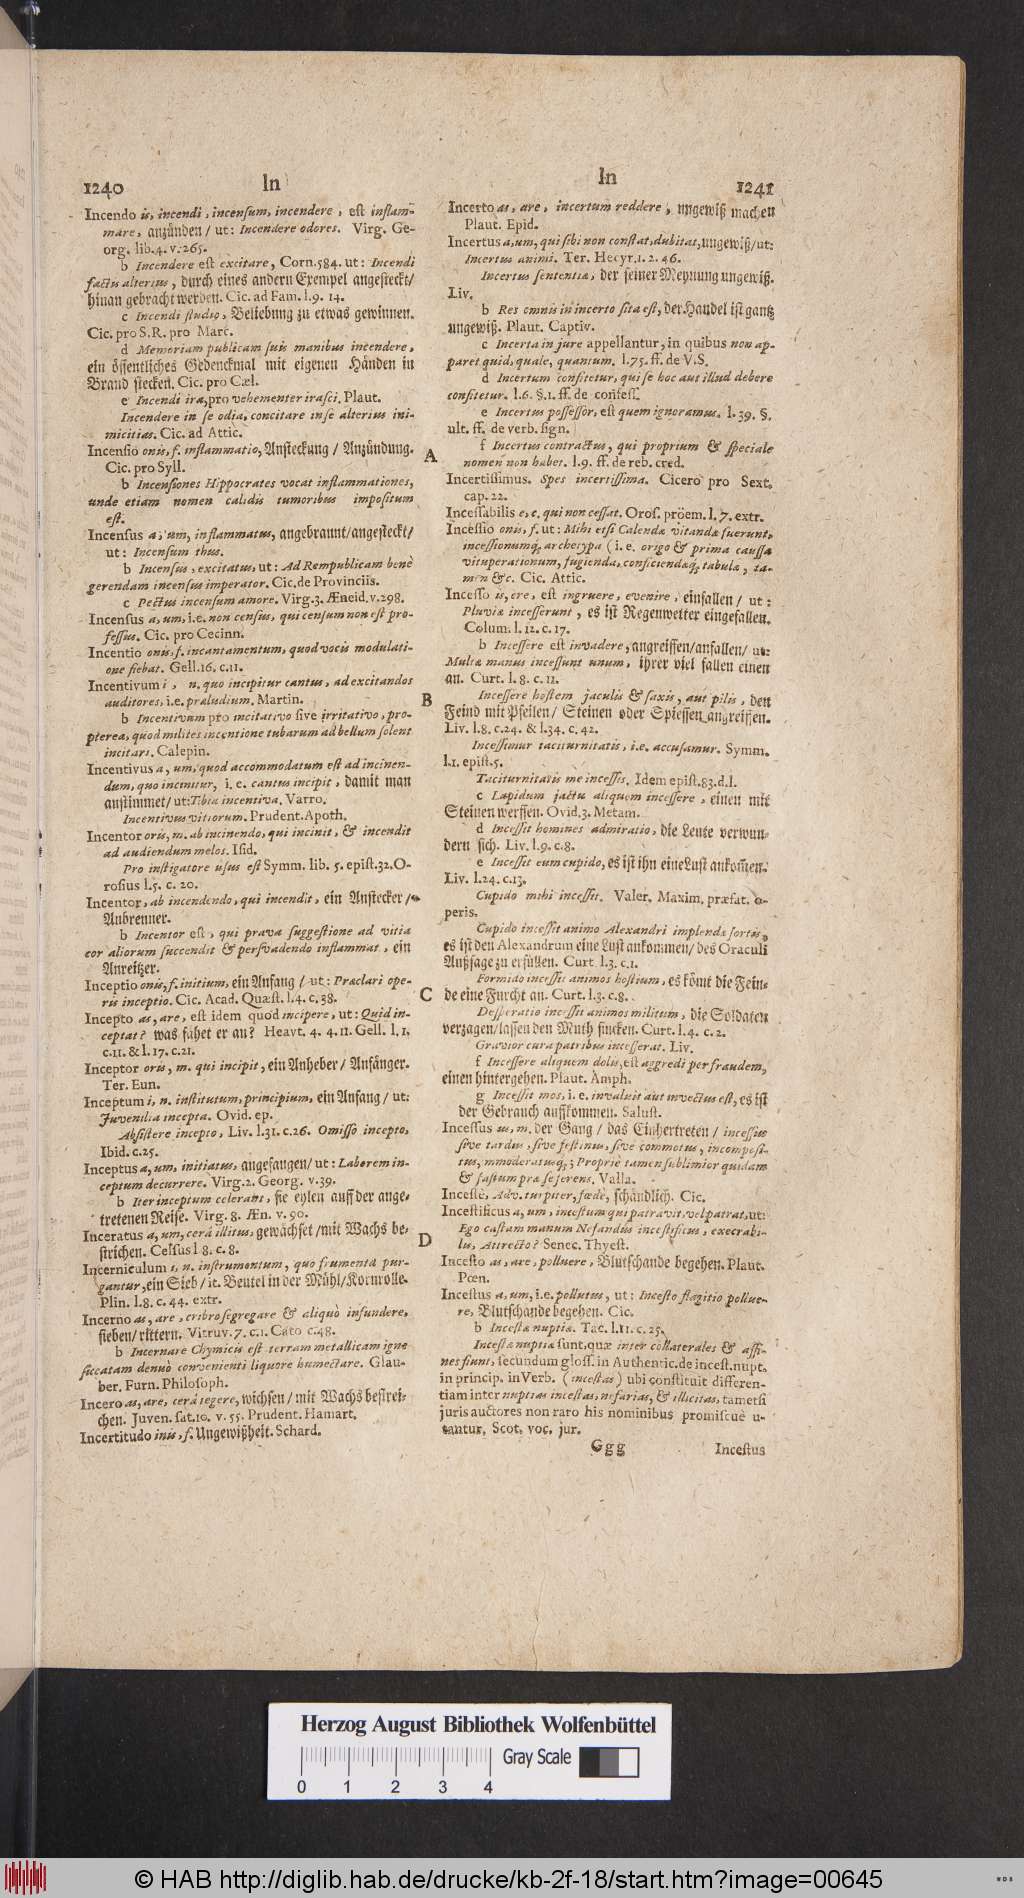 1240 In
Incendo is, incendi, incensum, incendere, est inflam-
mare, anzünden / ut: Incendere odores. Virg. Ge-
org. lib.4. v.265.
b Incendere est excitare, Corn.584. ut: Incendi
factu alterius, durch eines andern Exempel angesteckt/
hinan gebracht werden. Cic. ad Fam. l.9. 14.
c Incendi studio, Beliebung zu etwas gewinnen.
Cic. pro S.R. pro Marc.
d Memoriam publicam suis manibus incendere,
ein öffentliches Gedenckmal mit eigenen Händen in
Brand stecken. Cic. pro Cæl.
e Incendi ira, pro vehementer irasci. Plaut.
Incendere in se odia, concitare in se alterius ini-
micitias. Cic. ad Attic.
Incensio onis, f. inflammatio, Ansteckung / Anzündung.
Cic. pro Syll.
b Incensiones Hippocrates vocat inflammationes,
unde etiam nomen calidis tumoribus impositum
est.
Incensus a, um, inflammatus, angebrannt/angesteckt/
ut: Incensum thus.
b Incensus, excitatus, ut: Ad Rempublicam benè
gerendam incensus imperator. Cic. de Provinciis.
c Pectus incensum amore. Virg.3. Æneid. v.298.
Incensus a, um, i.e. non census, qui censum non est pro-
fessus. Cic. pro Cecinn.
Incentio onis, f. incantamentum, quod vocis modulati-
one fiebat. Gell.16. c.11.
Incentivum i, n. quo incipitur cantus, ad excitandos
auditores, i.e. præludium. Martin.
b Incentivum pro incitativo sive irritativo, pro-
pterea, quod milites incentione tubarum ad bellum solent
incitari. Calepin.
Incentivus a, um, quod accommodatum est ad incinen-
dum, quo incinitur, i. e. cantus incipit, damit man
anstimmet / ut: Tibia incentiva. Varro.
Incentivus vitiorum. Prudent. Apoth.
Incentor oris, m. ab incinendo, qui incinit, & incendit
ad audiendum melos. Isid.
Pro instigatore usus est Symm. lib. 5. epist.32. O-
rosius l.5. c. 20.
Incentor, ab incendendo, qui incendit, ein Anstecker /
Anbrenner.
b Incentor est, qui prava suggestione ad vitia
cor aliorum succendit & persvadendo inflammat, ein
Anreitzer.
Inceptio onis, f. initium, ein Anfang / ut: Præclari ope-
ris inceptio. Cic. Acad. Quæst. l.4. c.38.
Incepto as, are, est idem quod incipere, ut: Quid in-
ceptat? was fähet er an? Heavt. 4. 4. 11. Gell. l. 1.
c.11. & l. 17. c.21.
Inceptor oris, m. qui incipit, ein Anheber / Anfänger.
Ter. Eun.
Inceptum i, n. institutum, principium, ein Anfang / ut:
Juvenilia incepta. Ovid. ep.
Absistere incepto, Liv. l.31. c.26. Omisso incepto,
Ibid. c.25.
Inceptus a, um, initiatus, angefangen / ut: Laborem in-
ceptum decurrere. Virg.2. Georg. v.39.
b Iter inceptum celerant, sie eylen auff der ange-
tretenen Reise. Virg. 8. Æn. v. 90.
Inceratus a, um, cerâ illitus, gewächset / mit Wachs be-
strichen. Celsus l 8. c. 8.
Incerniculum i, n. instrumentum, quo frumenta pur-
gantur, ein Sieb / it. Beutel in der Mühl / Kornrolle.
Plin. l.8. c. 44. extr.
Incerno as, are, cribro segregare & aliquò infundere,
sieben / rittern. Vitruv. 7. c.1. Cato c.48.
b Incernare Chymicis est terram metallicam igne
siccatam denuò convenienti liquore humectare. Glau-
ber. Furn. Philosoph.
Incero as, are, cerâ tegere, wichsen / mit Wachs bestrei-
chen. Juven. sat.10. v. 55. Prudent. Hamart.
Incertitudo inis, f. Ungewißheit. Schard.
A
B
C
D
In 1241
Incerto as, are, incertum reddere, ungewiß machen
Plaut. Epid.
Incertus a, um, qui sibi non constat, dubitat, ungewiß / ut:
Incertus animi. Ter. Hecyr.1. 2. 46.
Incertus sententiæ, der seiner Meynung ungewiß.
Liv.
b Res omnis in incerto sita est, der Handel ist gantz
ungewiß. Plaut. Captiv.
c Incerta in jure appellantur, in quibus non ap-
paret quid, quale, quantum. l.75. ff. de V.S.
d Incertum confitetur, qui se hoc aut illud debere
confitetur. l.6. §.1. ff. de confess.
e Incertus possessor, est quem ignoramus. l. 39. §.
ult. ff. de verb. sign.
f Incertus contractus, qui proprium & speciale
nomen non habet. l.9. ff. de reb. cred.
Incertissimus. Spes incertissima. Cicero pro Sext.
cap. 22.
Incessabilis e, c. qui non cessat. Oros. pröem. l. 7. extr.
Incessio onis, f. ut: Mihi etsi Calendæ vitandæ fuerunt,
incessionumq; archetypa (i. e. origo & prima caussa
vituperationum, fugienda, conficiendæq; tabulæ, ta-
men &c. Cic. Attic.
Incesso is, ere, est ingruere, evenire, einfallen / ut:
Pluviæ incesserunt, es ist Regenwetter eingefallen.
Colum. l. 12. c. 17.
b Incessere est invadere, angreiffen/anfallen / ut:
Multæ manus incessunt unum, ihrer viel fallen einen
an. Curt. l. 8. c. 11.
Incessere hostem jaculis & saxis, aut pilis, den
Feind mit Pfeilen / Steinen oder Spiessen angreiffen.
Liv. l.8. c.24. & l.34. c. 42.
Incessimur taciturnitatis, i.e. accusamur. Symm.
l.1. epist.5.
Taciturnitatis me incessis. Idem epist.83. d.l.
c Lapidum jactu aliquem incessere, einen mit
Steinen werffen. Ovid.3. Metam.
d Incessit homines admiratio, die Leute verwun-
dern sich. Liv. l.9. c.8.
e Incessit eum cupido, es ist ihn eine Lust ankom̄en.
Liv. l.24. c.13.
Cupido mihi incessit. Valer. Maxim. præfat. o-
peris.
Cupido incessit animo Alexandri implendæ sortis,
es ist den Alexandrum eine Lust ankommen / des Oraculi
Außsage zu erfüllen. Curt. l.3. c.1.
Formido incessit animos hostium, es kömt die Fein-
de eine Furcht an. Curt. l.3. c.8.
Desperatio incessit animos militum, die Soldaten
verzagen / lassen den Muth sincken. Curt. l.4. c. 2.
Gravior cura patribus incesserat. Liv.
f Incessere aliquem dolis, est aggredi per fraudem,
einen hintergehen. Plaut. Amph.
g Incessit mos, i. e. invaluit aut invectus est, es ist
der Gebrauch auffkommen. Salust.
Incessus us, m. der Gang / das Einhertreten / incessus
sive tardus, sive festinus, sive commotus, incomposi-
tus, immoderatusq; ; Propriè tamen sublimior quidam
& fastum præ se ferens. Valla.
Incestè, Adv. turpiter, fœdè, schändlich. Cic.
Incestificus a, um, incestum qui patravit, vel patrat, ut:
Ego castam manum Nefandus incestificus, execrabi-
lis, Attrecto? Senec. Thyest.
Incesto as, are, polluere, Blutschande begehen. Plaut.
Pœn.
Incestus a, um, i.e. pollutus, ut: Incesto flagitio pollue-
re, Blutschande begehen. Cic.
b Incestæ nuptiæ. Tac. l.11. c. 25.
Incestæ nuptiæ sunt, quæ inter collaterales & affi-
nes fiunt, secundum gloss. in Authentic. de incest. nupt.
in princip. in Verb. (incestas) ubi constituit differen-
tiam inter nuptias incestas, nefarias, & illicitas, tametsi
juris auctores non raro his nominibus promiscuè u-
tantur, Scot. voc. jur.
Ggg Incestus
Herzog August Bibliothek Wolfenbüttel
Gray Scale
0 1 2 3 4
© HAB http://diglib.hab.de/drucke/kb-2f-18/start.htm?image=00645